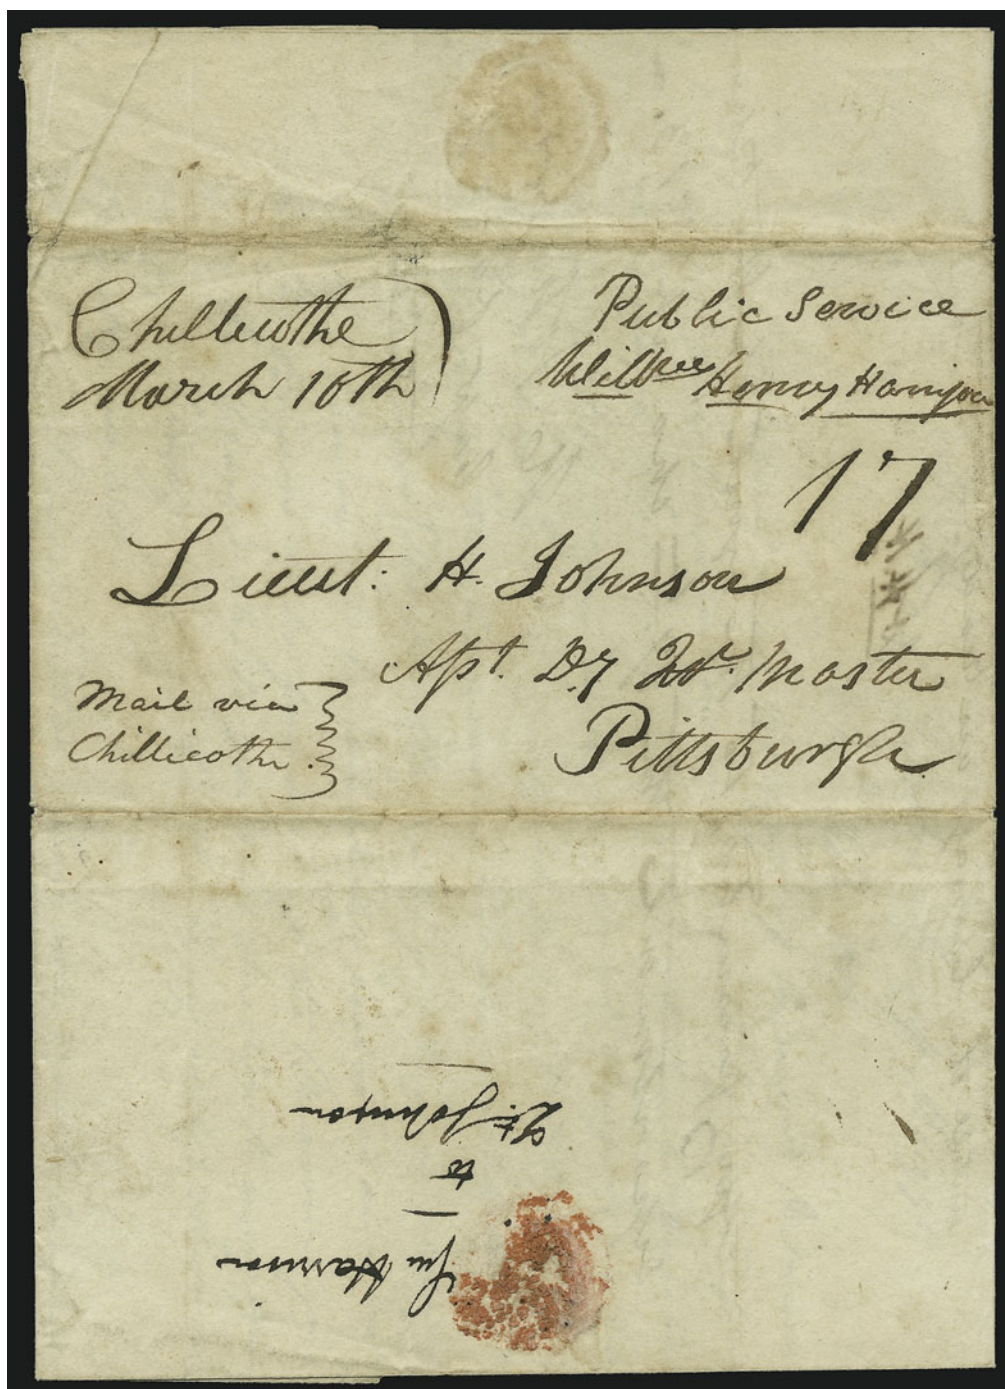 Chillicothe
March 10th
Public Service
Will^m Henry Harrison
17
Lieut: H. Johnson
Asst. Dy Qr. Master
Pittsburgh
Mail via
Chillicothe.
Gen Harrison
to
Lt. Johnson